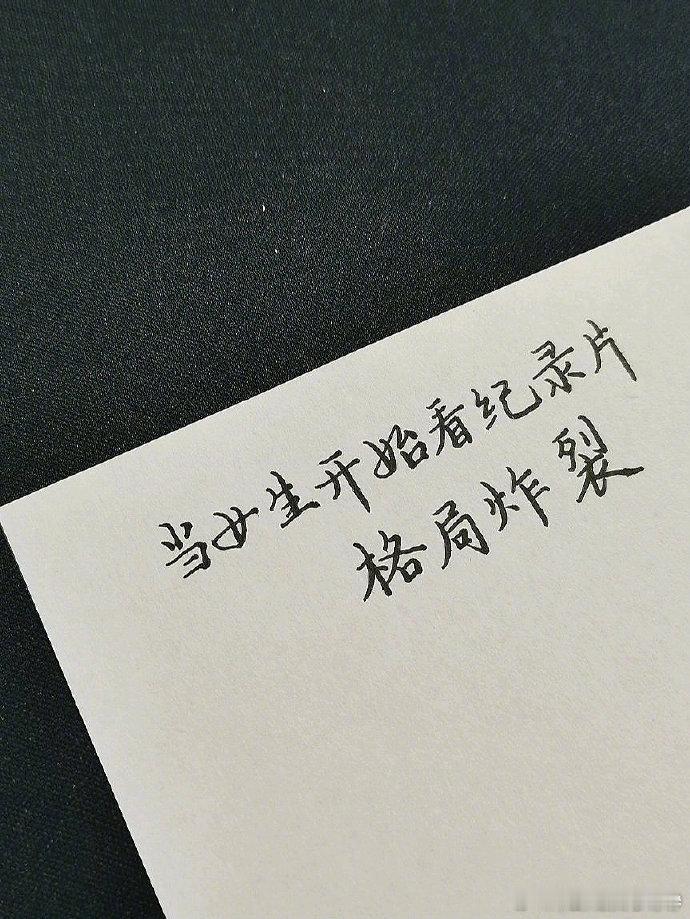 当女生开始看纪录片
格局炸裂